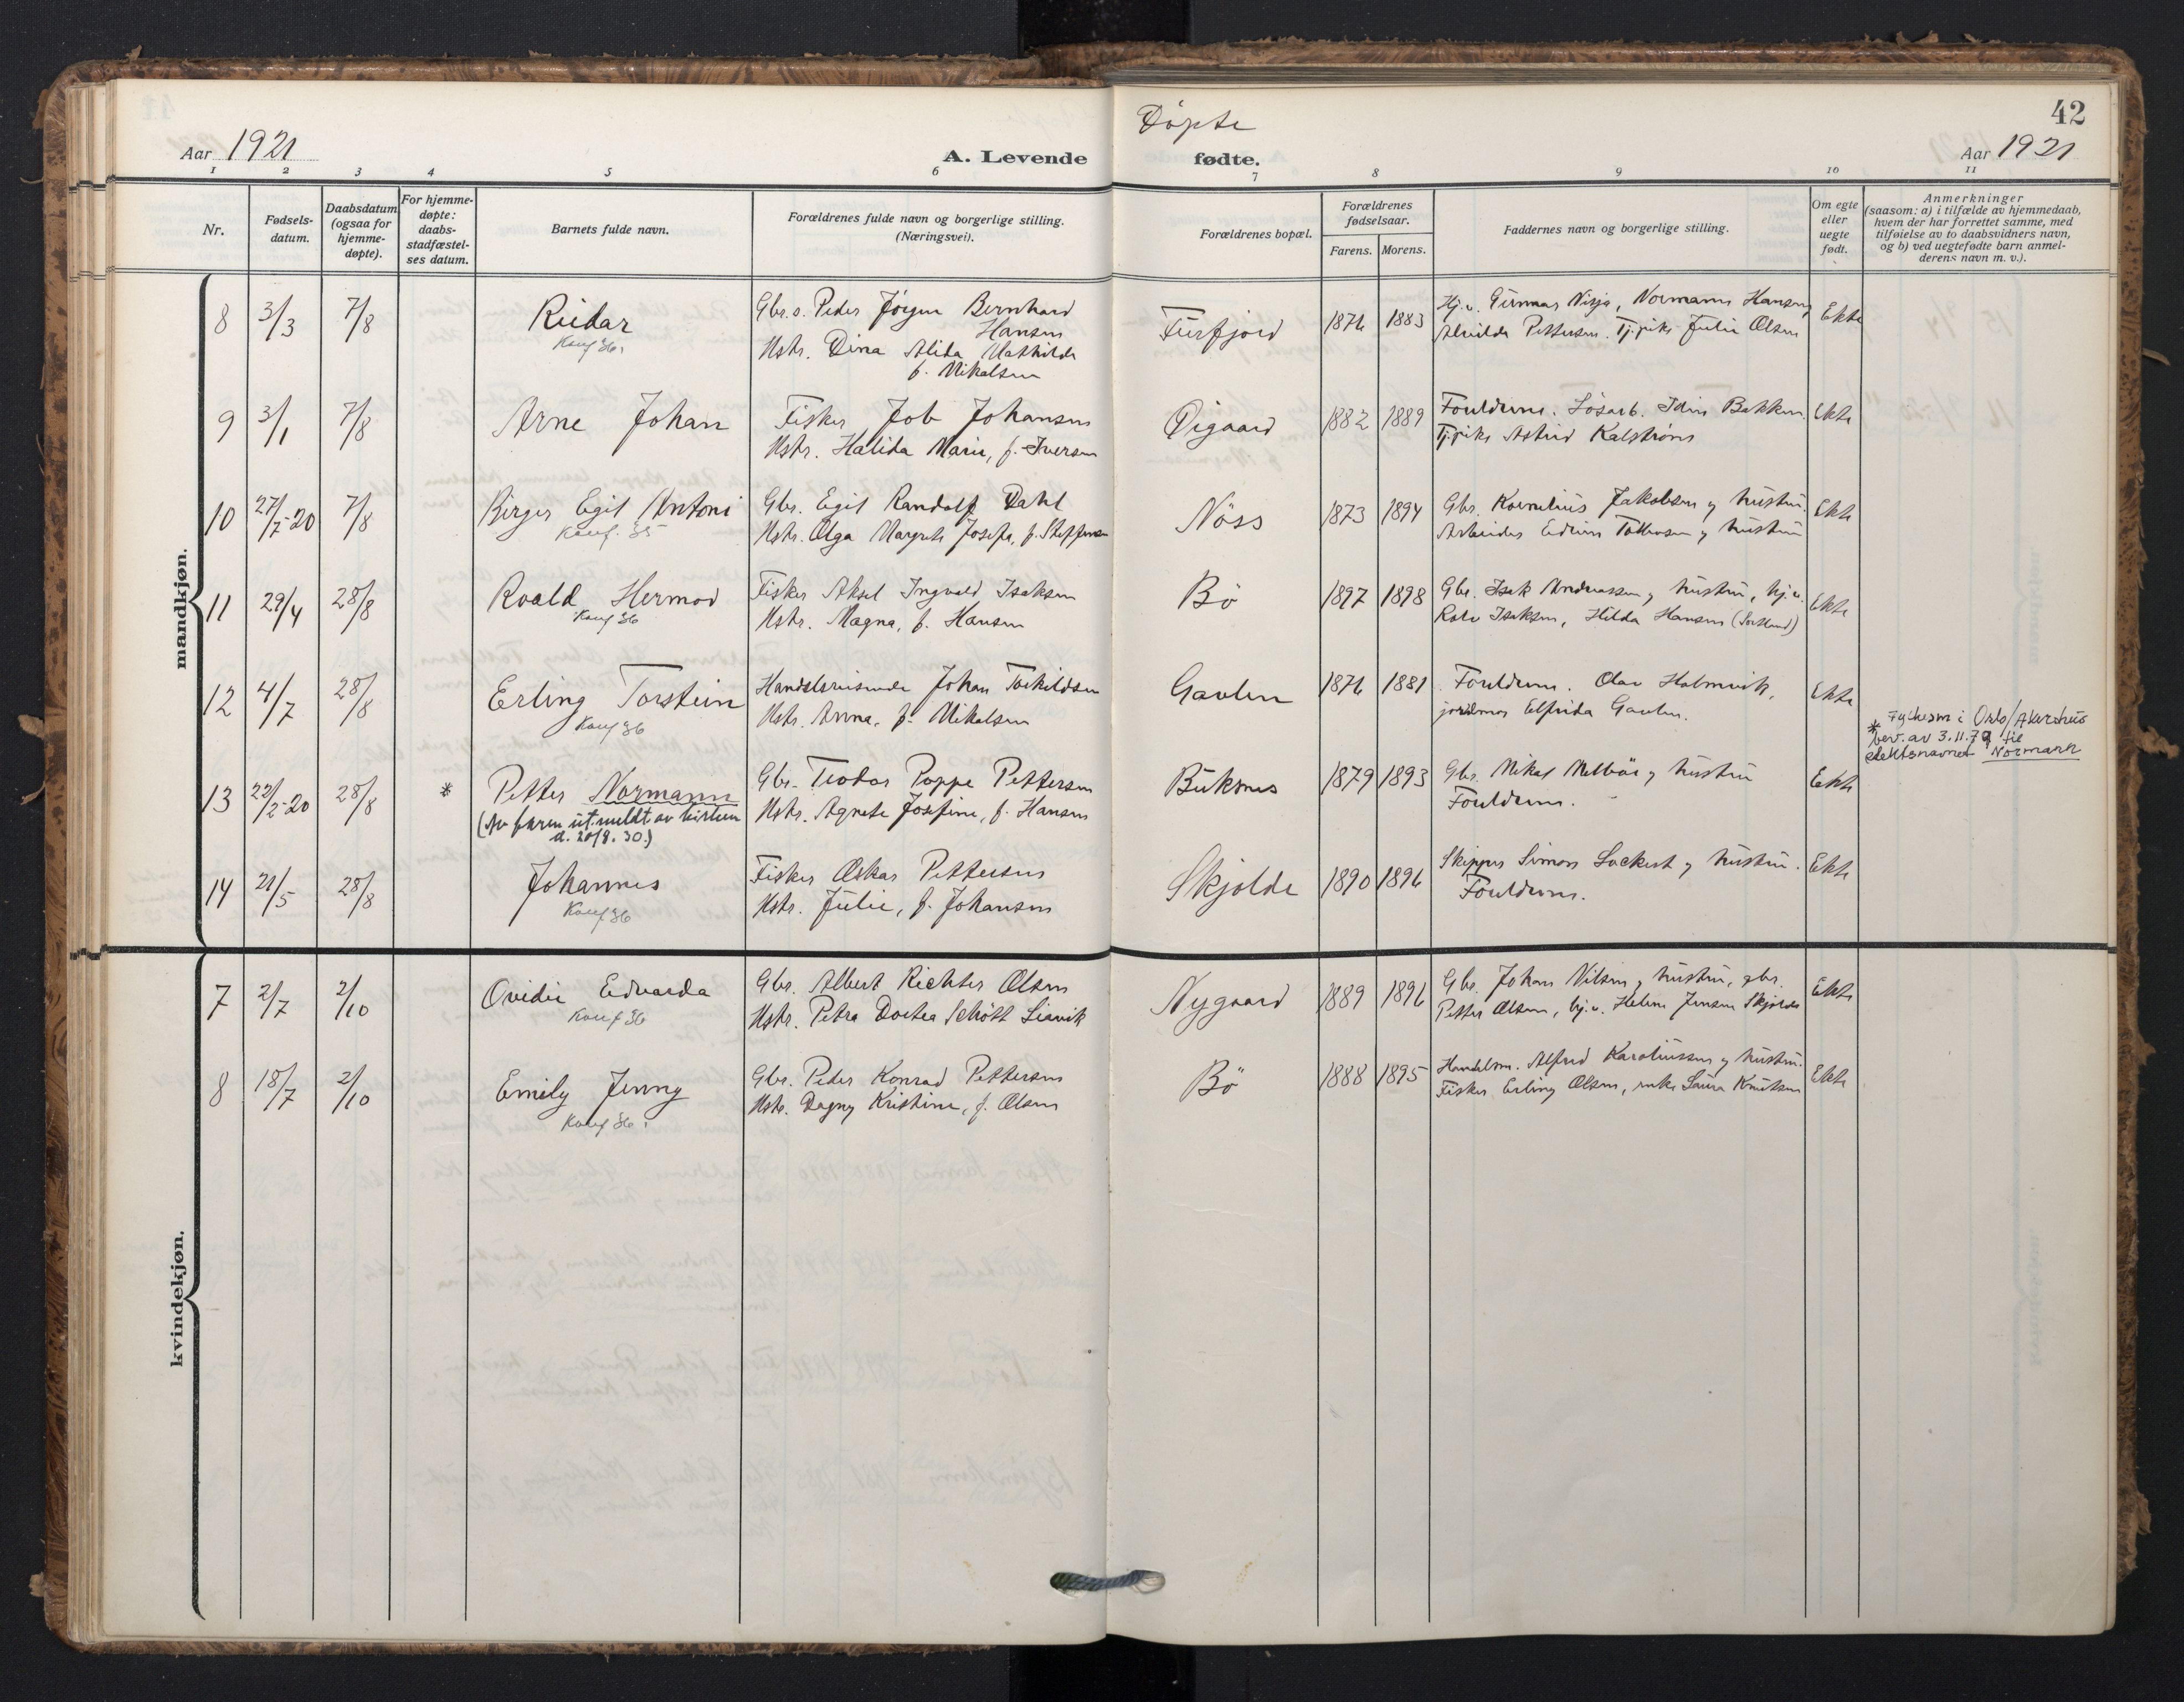 Døpte
42
Aar 1921
A. Levende fødte.
Aar 1921
1 2 3 4 5 6 7 8 9 10 11
Nr.
Fødsels-
datum.
Daabsdatum
(ogsaa for
hjemme-
døpte).
For hjemme-
døpte:
daabs-
stadfæstel-
ses datum.
Barnets fulde navn.
Forældrenes fulde navn og borgerlige stilling.
(Næringsvei).
Forældrenes bopæl.
Forældrenes
fødselsaar.
Farens. Morens.
Faddernes navn og borgerlige stilling.
Om egte
eller
uegte
født.
Anmerkninger
(saasom: a) i tilfælde av hjemmedaab,
hvem der har forrettet samme, med
tilføielse av to daabsvidners navn,
og b) ved uegtefødte barn anmel-
derens navn m. v.).
mandkjøn.
8 3/3 7/8
Reidar
Konf 36.
Gbr.s. Peder Jørgen Bernhard
Hansen
Hstr. Dina Alida Mathilde
f. Mikalsen
Furfjord 1876 1883
Hj.v. Gunnar Nisja, Normann Hansen,
Alvilda Pettersen. Tj.pike Julie Olsen
Ekte
9 3/1 7/8
Arne Johan
Fisker Job Johansen
Hstr. Halida Marie, f. Iversen
Øigaard 1882 1889
Forældrene. Løsarb. Idin Bakken.
Tj.pike Astrid Kalstrøm
Ekte
10 27/7-20 7/8
Birger Egil Antoni
Konf. 35
Gbr. Egil Randolf Dahl
Hstr. Olga Margrete Josefa, f. Steffensen
Nöss 1873 1894
Gbr. Kornelius Jakobsen og hustru.
Arbeider Edvin Tollevsen og hustru
Ekte
11 29/4 28/8
Roald Hermod
Konf 36
Fisker Aksel Ingvald Isaksen
Hstr. Magna, f. Hansen
Bö 1897 1898
Gbr. Isak Andreassen og hustru, hj.v.
Rolv Isaksen, Hilda Hansen (Sortland)
Ekte
12 4/7 28/8
Erling Torstein
Konf 36
Handelsreisende Johan Torkildsen
Hstr. Anna, f. Mikalsen
Gavlen 1876 1881
Forældrene. Olav Holmvik,
jordmor Elfrida Gavlen.
Ekte
* Fylkesm i Oslo/Akershus
bev. av 3.11.79 til
slektsnavnet Normann
13 22/2-20 28/8 *
Petter Normann
(Av faren utmeldt av kirken
d. 20/8. 30.)
Gbr. Teodor Poppe Pettersen
Hstr. Agnete Josefine, f. Hansen
Buksnes 1879 1893
Gbr. Mikal Melböe og hustru
Forældrene.
Ekte
14 21/5 28/8
Johannes
Konf 36
Fisker Oskar Pettersen
Hstr. Julie, f. Johansen
Skjolde 1890 1896
Skipper Simon Lockert og hustru.
Forældrene.
Ekte
kvindekjøn.
7 2/7 2/10
Ovidie Edvarda
Konf 36
Gbr. Albert Richter Olsen
Hstr. Petra Dortea Schött Liavik
Nygaard 1889 1896
Gbr. Johan Nilsen og hustru, gbr.
Petter Olsen, hj.v. Helene Jensen Skjolde
Ekte
8 18/7 2/10
Emily Jenny
Konf 36.
Gbr. Peder Konrad Pettersen
Hstr. Dagny Kristine, f. Olsen
Bö 1888 1895
Handelsm. Alfred Karoliussen og hustru.
Fisker Erling Olsen, enke Laura Knutsen
Ekte